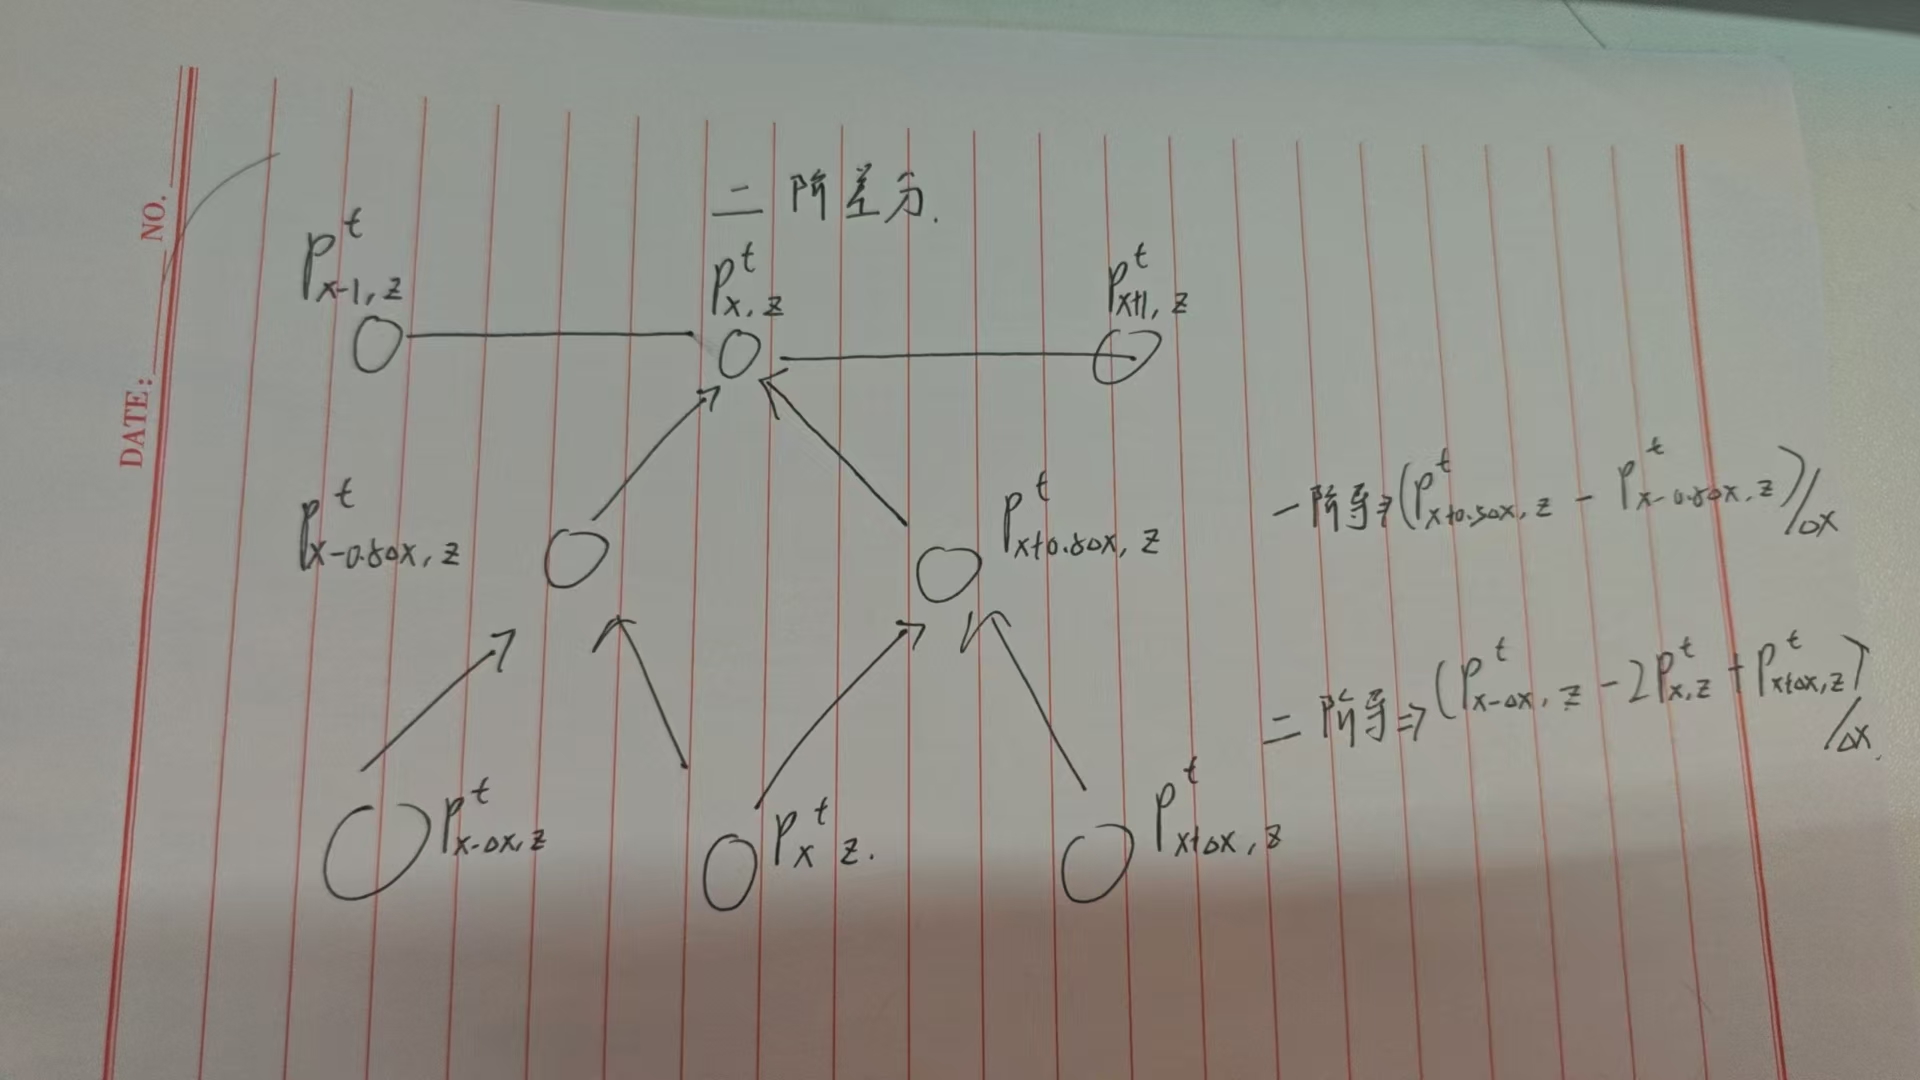 NO.
DATE:
二阶差分.
P^t_{x-1, z}
P^t_{x, z}
P^t_{x+1, z}
P^t_{x-0.5Δx, z}
P^t_{x+0.5Δx, z}
一阶导⇒(P^t_{x+0.5Δx, z} - P^t_{x-0.5Δx, z})/Δx
二阶导⇒(P^t_{x-Δx, z} - 2P^t_{x,z} + P^t_{x+Δx,z})/Δx.
P^t_{x-Δx, z}
P^t_{x z}.
P^t_{x+Δx, z}